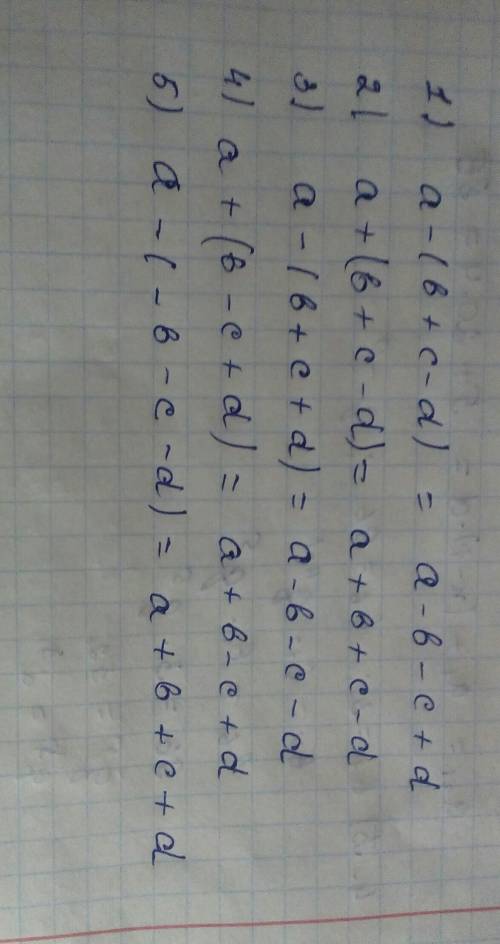 1) a - (b + c - d) = a - b - c + d
2) a + (b + c - d) = a + b + c - d
3) a - (b + c + d) = a - b - c - d
4) a + (b - c + d) = a + b - c + d
5) a - (- b - c - d) = a + b + c + d